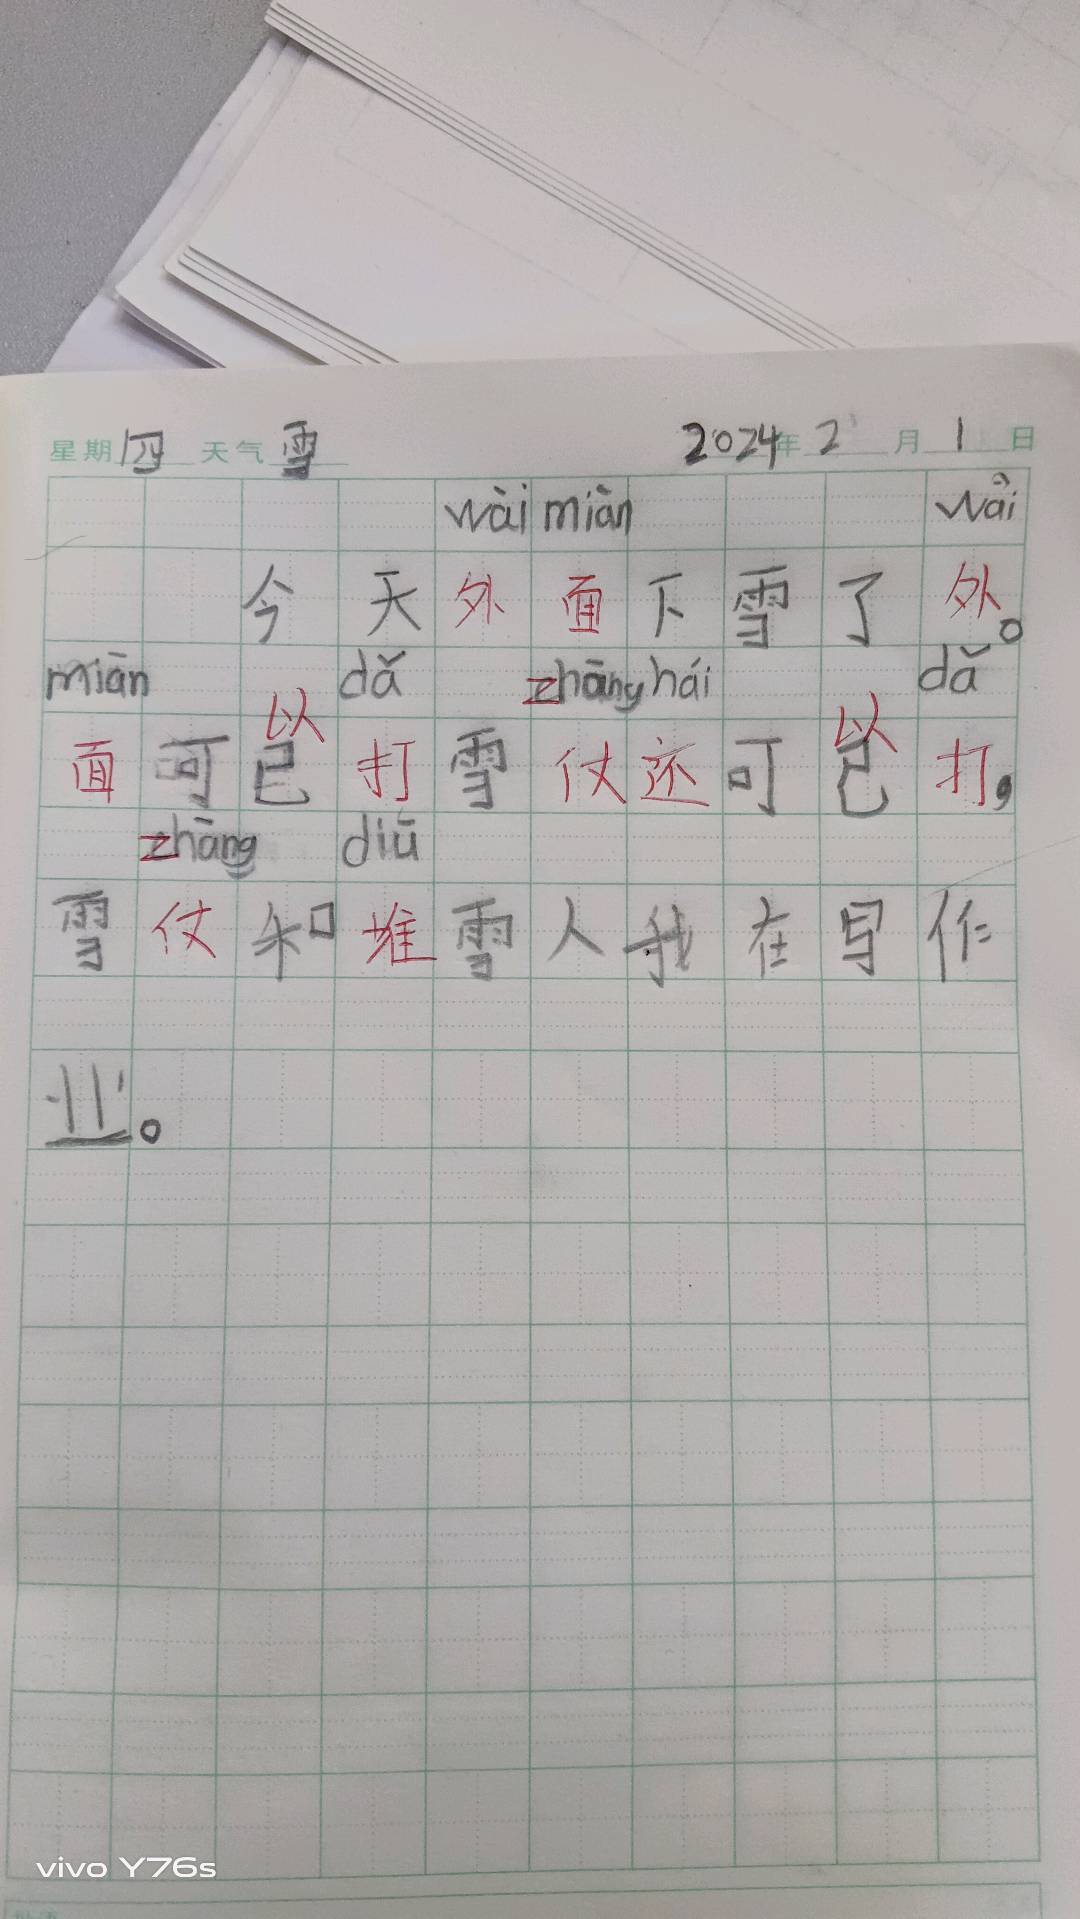 星期 四 天气 雪 2024年 2月 1日
wài miàn wài
今天外面下雪了外。
miān dǎ zhāng hái dǎ
以 以
面可已打雪仗还可已打,
zhāng diū
雪仗和堆雪人我在写作
业。
vivo Y76s